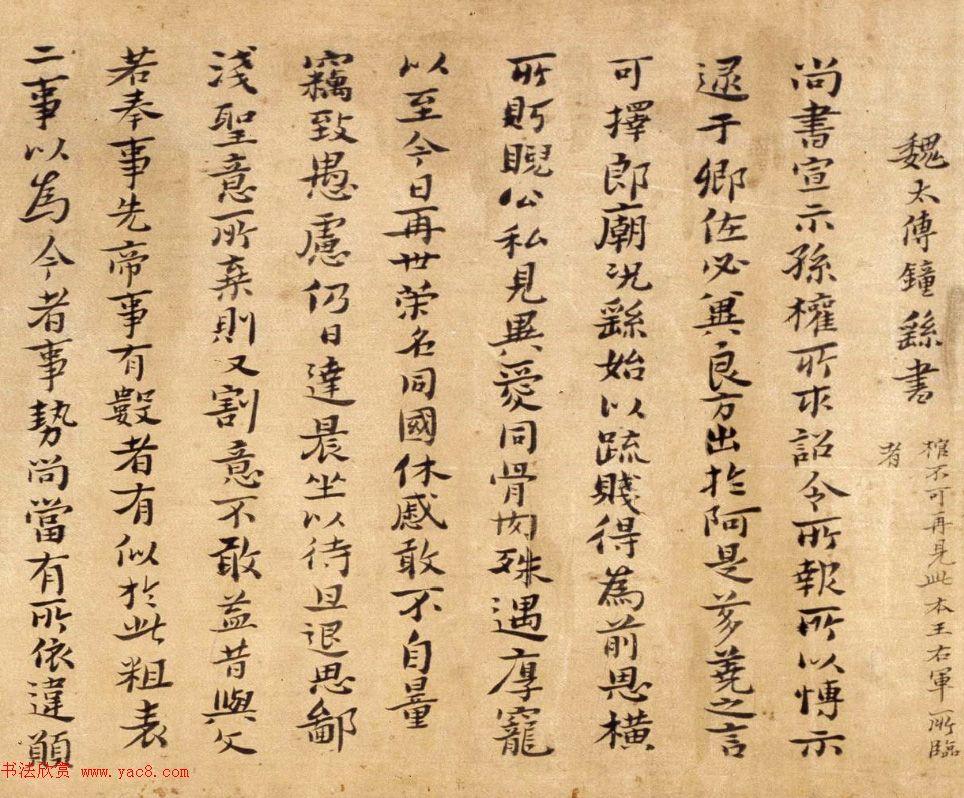 魏太傅鍾繇書
棺不可再見此本王右軍所臨
者
尚書宣示孫權所求詔令所報所以博示
逮于卿佐必冀良方出於阿是芻蕘之言
可擇郎廟況繇始以疏賤得為前恩橫
所盻睨公私見異愛同骨肉殊遇厚寵
以至今日再世榮名同國休慼敢不自量
竊致愚慮仍日達晨坐以待旦退思鄙
淺聖意所棄則又割意不敢益昔與父
若奉事先帝事有數者有似於此粗表
二事以為今者事勢尚當有所依違顛
书法欣赏 www.yac8.com